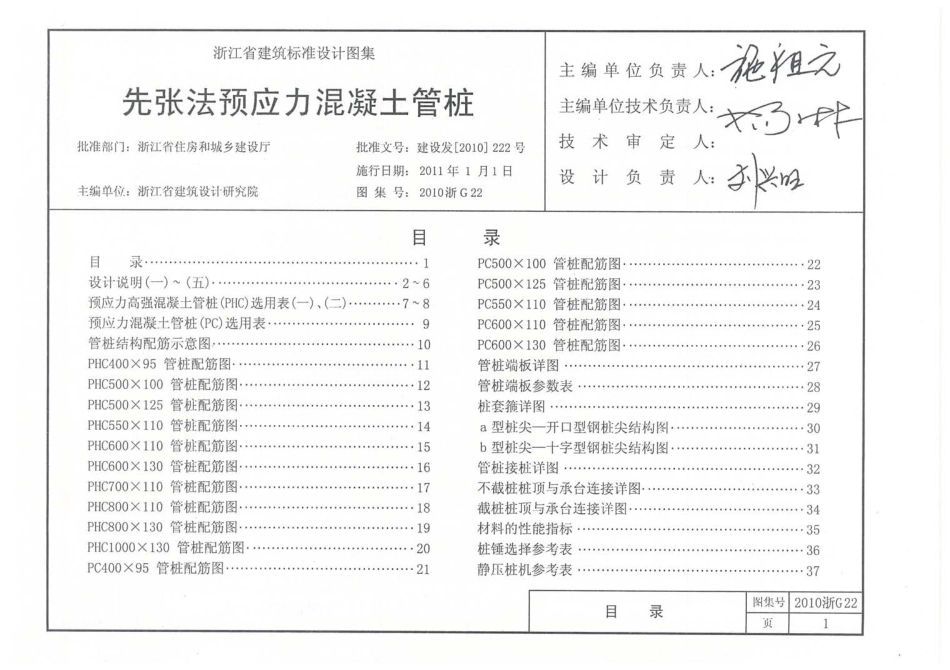 浙江省建筑标准设计图集
先张法预应力混凝土管桩
批准部门：浙江省住房和城乡建设厅
批准文号：建设发[2010]222号
施行日期：2011年1月1日
主编单位：浙江省建筑设计研究院
图集号：2010浙G22
主编单位负责人：施祖元
主编单位技术负责人：
技术审定人：
设计负责人：刘兴旺
目 录
目 录……1
设计说明(一)~(五)……2~6
预应力高强混凝土管桩(PHC)选用表(一)、(二)……7~8
预应力混凝土管桩(PC)选用表……9
管桩结构配筋示意图……10
PHC400×95 管桩配筋图……11
PHC500×100 管桩配筋图……12
PHC500×125 管桩配筋图……13
PHC550×110 管桩配筋图……14
PHC600×110 管桩配筋图……15
PHC600×130 管桩配筋图……16
PHC700×110 管桩配筋图……17
PHC800×110 管桩配筋图……18
PHC800×130 管桩配筋图……19
PHC1000×130 管桩配筋图……20
PC400×95 管桩配筋图……21
PC500×100 管桩配筋图……22
PC500×125 管桩配筋图……23
PC550×110 管桩配筋图……24
PC600×110 管桩配筋图……25
PC600×130 管桩配筋图……26
管桩端板详图……27
管桩端板参数表……28
桩套箍详图……29
a型桩尖—开口型钢桩尖结构图……30
b型桩尖—十字型钢桩尖结构图……31
管桩接桩详图……32
不截桩桩顶与承台连接详图……33
截桩桩顶与承台连接详图……34
材料的性能指标……35
桩锤选择参考表……36
静压桩机参考表……37
目 录
图集号 2010浙G22
页 1